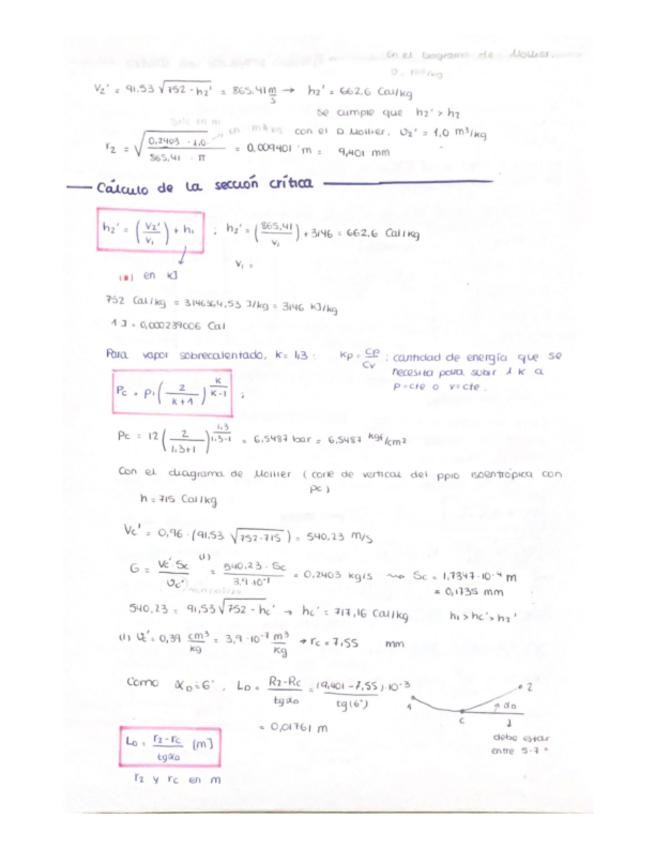 en el Diagrama de Mollier.
V₂' = 91,53 √(752 - h₂') = 865,41 m/s → h₂' = 662,6 Cal/kg
se cumple que h₂' > h₂
en m³/kg con el D Mollier, υ₂' = 1,0 m³/kg
r₂ = √((0,2403 · 1,0)/(865,41 · π)) = 0,009401 m = 9,401 mm
Cálculo de la sección crítica
h₂' = (V₂'/V₁) + h₁ ; h₂' = (865,41/V₁) + 3146 = 662,6 Cal/kg
V₁ =
en kJ
752 Cal/kg = 3146364,53 J/kg = 3146 kJ/kg
1 J = 0,000239006 Cal
Para vapor sobrecalentado, k = 1,3 : Kp = Cp/Cv : cantidad de energía que se
necesita para subir 1 K a
p=cte o v=cte.
Pc = P₁ (2/(K+1))^(K/(K-1)) ;
Pc = 12 (2/(1,3+1))^(1,3/(1,3-1)) = 6,5487 bar = 6,5487 kgf/cm²
Con el diagrama de Mollier (corte de vertical del ppio isoentrópica con
pc)
h = 715 Cal/kg
Vc' = 0,96 · (91,53 √(752-715)) = 540,23 m/s
G = (Vc' Sc)/υc' (1) = (540,23 · Sc)/(3,9·10⁻¹) = 0,2403 kg/s ⟿ Sc = 1,7347·10⁻⁴ m
= 0,1735 mm
540,23 = 91,53 √(752 - hc') → hc' = 717,16 Cal/kg h₁ > hc' > h₂'
(1) υc' = 0,39 cm³/kg = 3,9·10⁻⁷ m³/kg → rc = 7,55 mm
Como αD = 6°, LD = (R₂-Rc)/tgαD = ((9,401 - 7,55)·10⁻³)/tg(6°)
= 0,01761 m
1 c 2 αD
debe estar
entre 5-7°
LD = (r₂-rc)/tgαD [m]
r₂ y rc en m